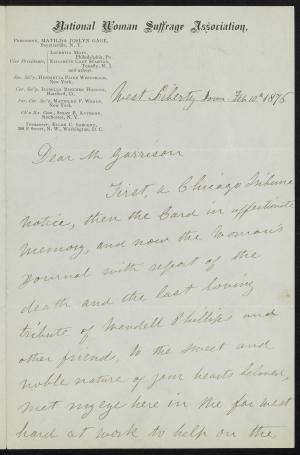 National Woman Suffrage Association,
President, MATILDA JOSLYN GAGE,
Fayetteville, N. Y.
LUCRETIA MOTT,
Philadelphia, Pa.
Vice Presidents, ELIZABETH CADY STANTON,
Tenafly, N. J.
and others.
Rec. Sec'y, HENRIETTA PAINE WESTBROOK,
New York.
Cor. Sec'y, ISABELLA BEECHER HOOKER,
Hartford, Ct.
For. Cor. Sec'y,
New York.
Ch'n Ex. Com., SUSAN B. ANTHONY,
Rochester, N. Y.
Treasurer, ELLEN C. SARGENT,
N.W., Washington, D. C.
West Liberty Iowa Feb 10th 1876
Dear Mr Garrison
First, a Chicago Tribune
notice, then the Card in affectionate
memory, and now the Woman's
Journal with report of the
death and the last loving
tribute of Wendell Phillips and
other friends, to the sweet and
noble nature of your heart's beloved,
met my eye here in the far west
hard at work to help on the